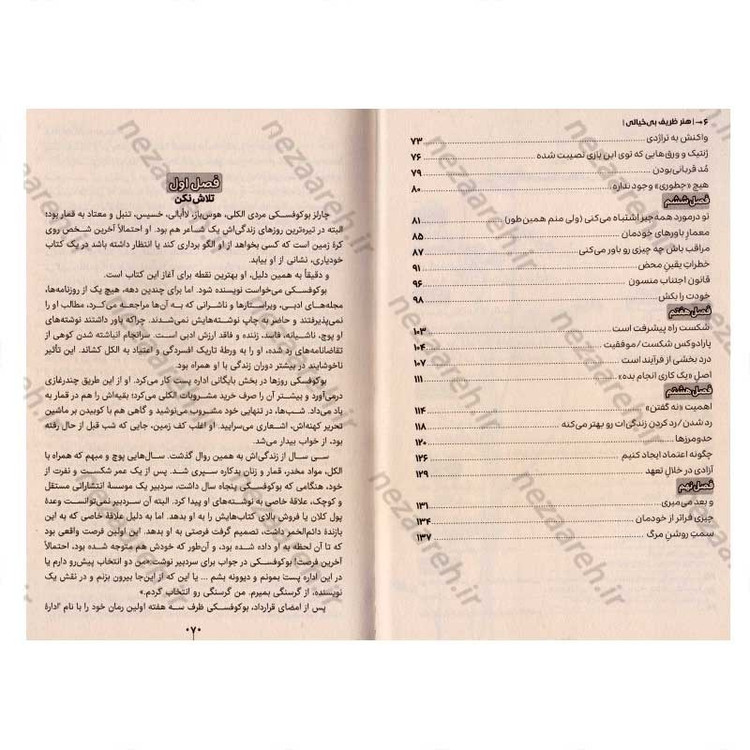 ۶ → | هنر ظریف بی‌خیالی |
واکنش به تراژدی ۷۳
ژنتیک و ورق‌هایی که توی این بازی نصیبت شده ۷۶
مُد قربانی‌بودن ۷۹
هیچ «چطوری» وجود نداره ۸۰
فصل ششم
تو درمورد همه‌چیز اشتباه می‌کنی (ولی منم همین طور) ۸۱
معمارِ باورهای خودمان ۸۵
مراقب باش چه چیزی رو باور می‌کنی ۸۷
خطراتِ یقینِ محض ۹۱
قانون اجتناب منسون ۹۶
خودت را بکش ۹۸
فصل هفتم
شکست راه پیشرفت است ۱۰۳
پارادوکس شکست/موفقیت ۱۰۴
درد بخشی از فرآیند است ۱۰۷
اصلِ «یک کاری انجام بده» ۱۱۱
فصل هشتم
اهمیت «نه گفتن» ۱۱۴
رد شدن/رد کردن زندگی‌ات رو بهتر می‌کنه ۱۱۸
حدومرزها ۱۲۰
چگونه اعتماد ایجاد کنیم ۱۲۶
آزادی در خلالِ تعهد ۱۲۹
فصل نهم
و بعد می‌میری ۱۳۱
چیزی فراتر از خودمان ۱۳۴
سمتِ روشنِ مرگ ۱۳۷
فصل اول
تلاش نکن
چارلز بوکوفسکی مردی الکلی، هوس‌باز، لاابالی، خسیس، تنبل و معتاد به قمار بود؛
البته در تیره‌ترین روزهای زندگی‌اش یک شاعر هم بود. او احتمالاً آخرین شخص روی
کرهٔ زمین است که کسی بخواهد از او الگو برداری کند یا انتظار داشته باشد در یک کتاب
خودیاری، نشانی از او بیابد.
و دقیقاً به همین دلیل، او بهترین نقطه برای آغاز این کتاب است.
بوکوفسکی می‌خواست نویسنده شود. اما برای چندین دهه، هیچ یک از روزنامه‌ها،
مجله‌های ادبی، ویراستارها و ناشرانی که به آن‌ها مراجعه می‌کرد، مطالب او را
نمی‌پذیرفتند و حاضر به چاپ نوشته‌هایش نمی‌شدند. چراکه باور داشتند نوشته‌های
او پوچ، ناشیانه، فاسد، زننده و فاقد ارزش ادبی است. سرانجام انباشته شدن کوهی از
تقاضانامه‌های رد شده، او را به ورطهٔ تاریک افسردگی و اعتیاد به الکل کشاند. این تأثیر
ناخوشایند در بیشتر دوران زندگی با او همراه بود.
بوکوفسکی روزها در بخش بایگانی اداره پست کار می‌کرد. او از این طریق چندرغازی
درمی‌آورد و بیشتر آن را صرف خرید مشروبات الکلی می‌کرد؛ بقیه‌اش را هم در قمار به
باد می‌داد. شب‌ها، در تنهایی خود مشروب می‌نوشید و گاهی هم با کوبیدن بر ماشین
تحریر کهنه‌اش، اشعاری می‌سرایید. او اغلب کف زمین، جایی که شب قبل از حال رفته
بود، از خواب بیدار می‌شد.
سی سال از زندگی‌اش به همین روال گذشت. سال‌هایی پوچ و مبهم که همراه با
الکل، مواد مخدر، قمار و زنان بدکاره سپری شد. پس از یک عمر شکست و نفرت از
خود، هنگامی که بوکوفسکی پنجاه سال داشت، سردبیر یک موسسهٔ انتشاراتی مستقل
و کوچک، علاقهٔ خاصی به نوشته‌های او پیدا کرد. البته آن سردبیر نمی‌توانست وعدهٔ
پول کلان یا فروش بالای کتاب‌هایش را به او بدهد. اما به دلیل علاقهٔ خاصی که به این
بازندهٔ دائم‌الخمر داشت، تصمیم گرفت فرصتی به او بدهد. این اولین فرصت واقعی بود
که تا آن لحظه به او داده شده بود، و آن‌طور که خودش هم متوجه شده بود، احتمالاً
آخرین فرصت! بوکوفسکی در جوابی برای سردبیر نوشت:«من دو انتخاب پیش‌رو دارم یا
در این اداره پست بمونم و دیوونه بشم ... یا این که از این‌جا بیرون بزنم و در نقش یک
نویسنده، از گرسنگی بمیرم. من گرسنگی رو انتخاب کردم.»
پس از امضای قرارداد، بوکوفسکی ظرف سه هفته اولین رمان خود را با نام «ادارهٔ
۰۷۰
nezaareh.ir
nezaareh.ir
nezaareh.ir
nezaareh.ir
nezaareh.ir
nezaareh.ir